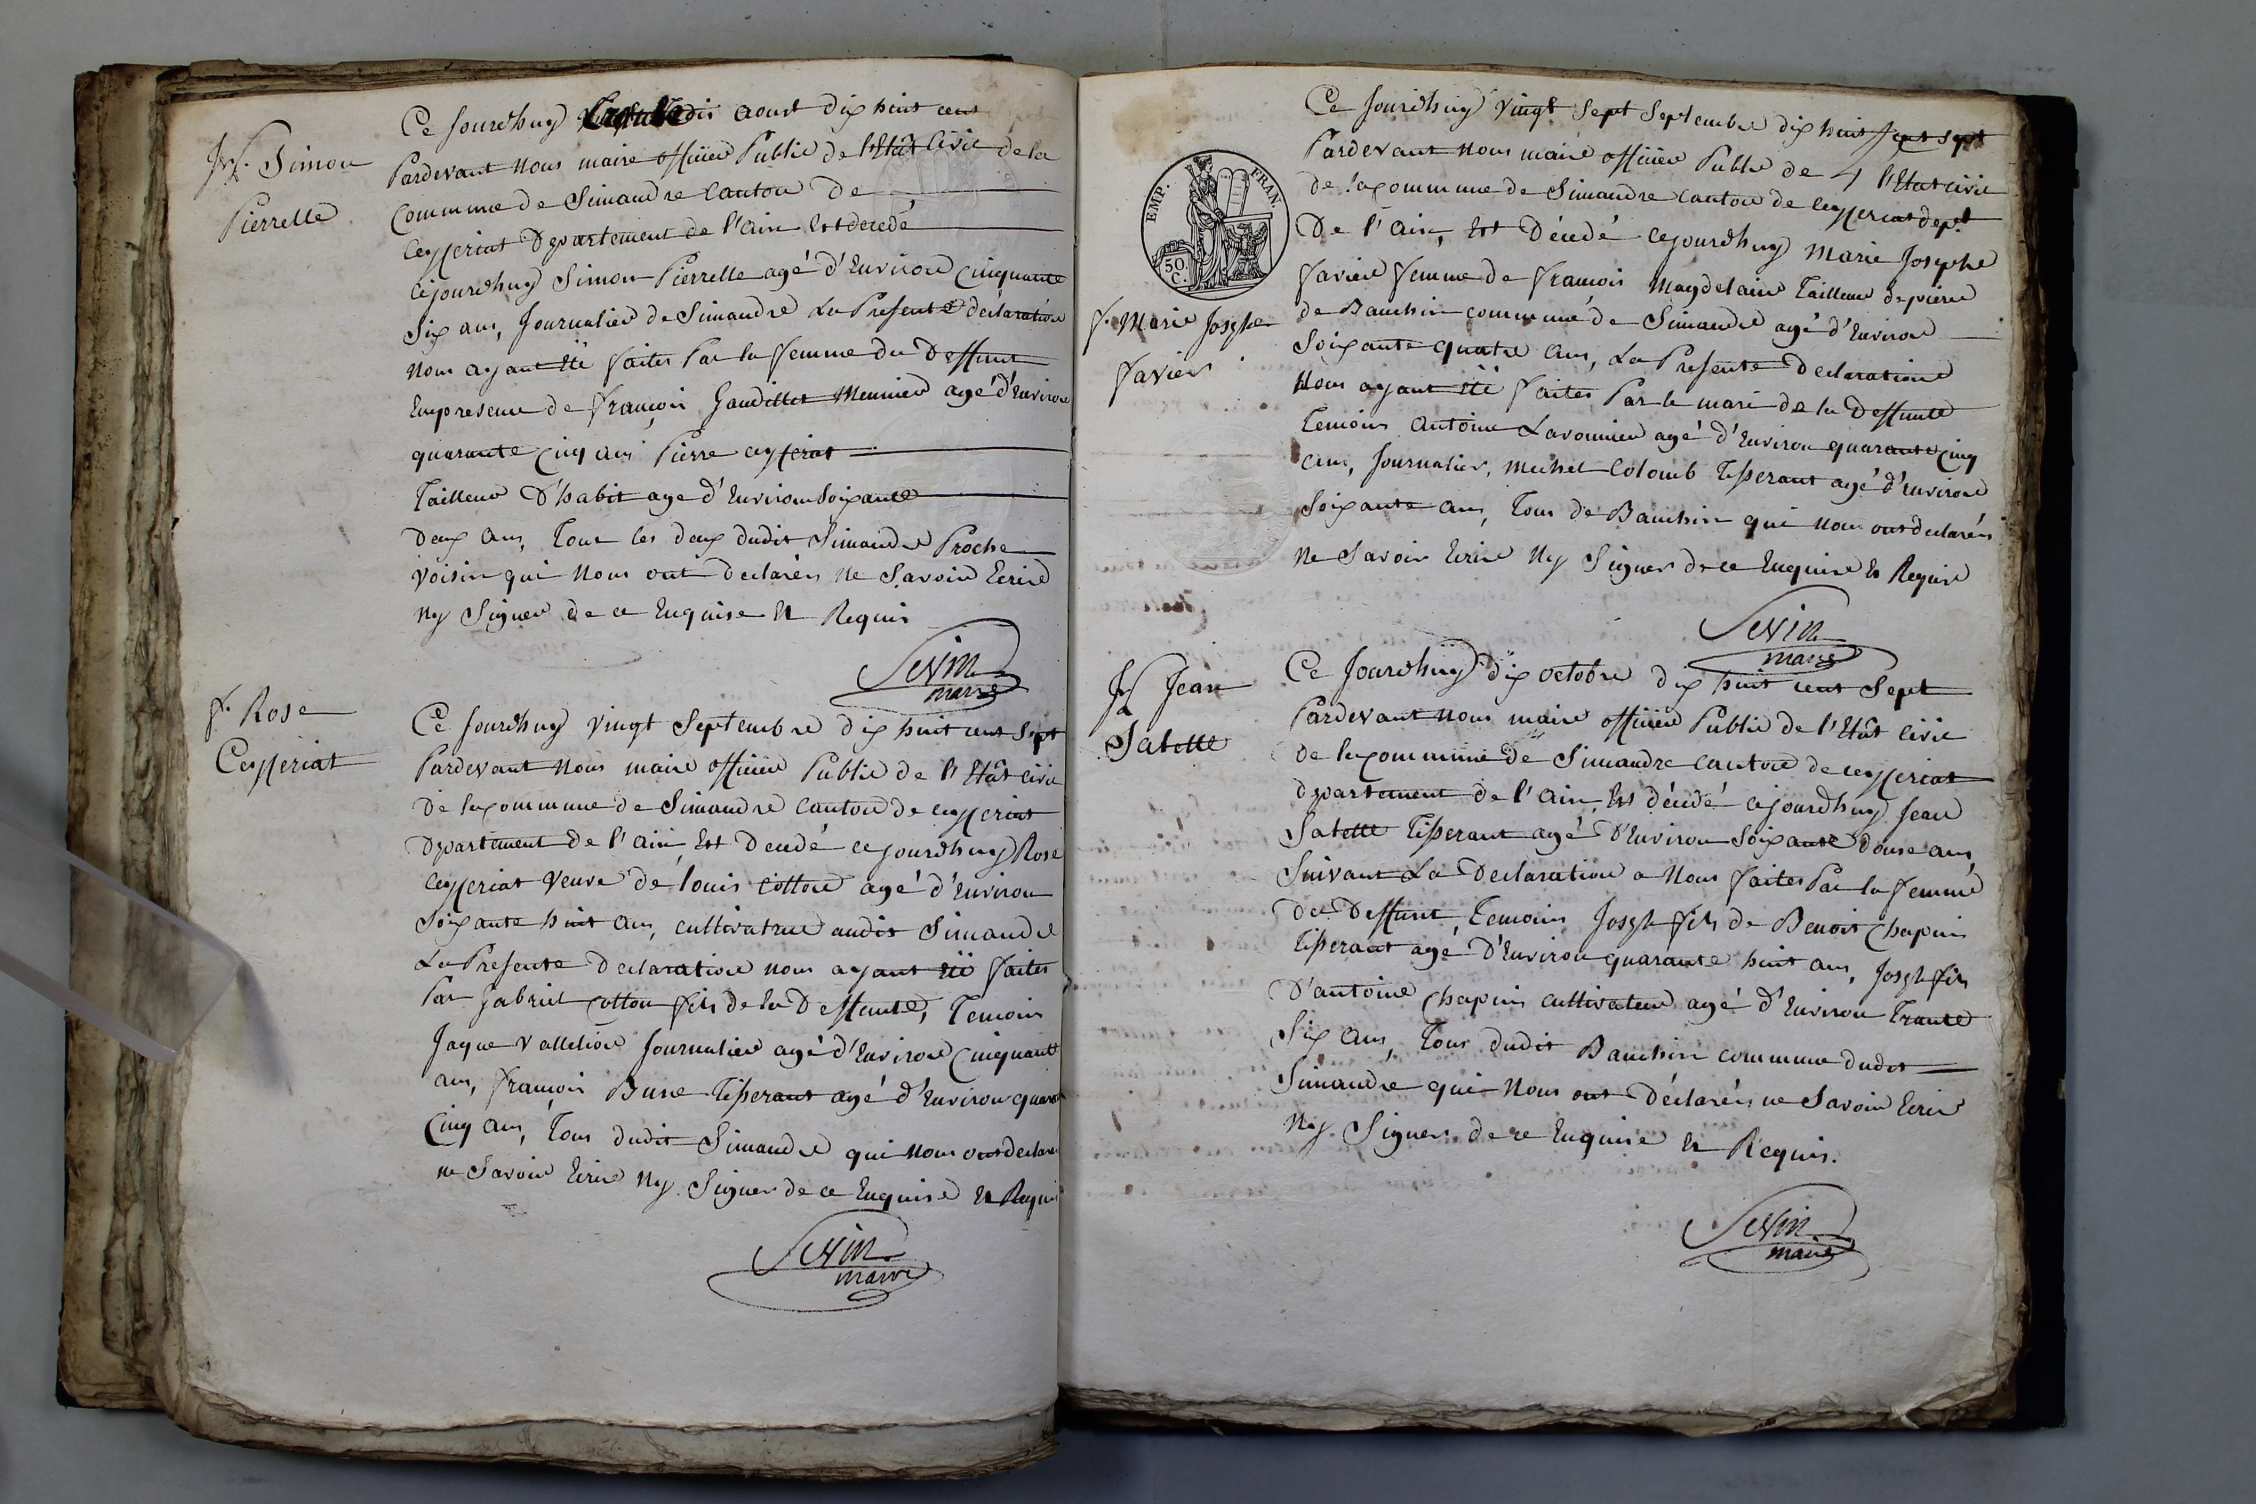 h. Simon
Pierrelle
Ce Jourdhuy aoust dix huit cent
Pardevant nous maire officier Public de l'Etât Civil de la
Commune de Simandre Canton de
Ceyzeriat Departement de l'ain Est decedé
Cejourdhuy Simon Pierrelle agé d'Environ Cinquante
Six ans, Journalier de Simandre La Presente déclaration
nous ayant été faites Par la femme du Deffunt
En presence de françois Gaudillet Meunier agé d'Environ
quarante Cinq ans Pierre ceyzeriat
Tailleur D'habit age d'Environ Soixante
Deux ans, Tous les deux dudit Simandre Proche
Voisin qui Nous ont declarés Ne Savoir Ecrire
Ny Signer de ce Enquise Et Requis
Sevin
maire
f. Rose
Ceyzeriat
Ce Jourdhuy vingt Septembre dix huit cent Sept
Pardevant Nous maire officier Public de l'Etât Civil
De la Commune de Simandre Canton de ceyzeriat
Departement de l'ain Est Decedé cejourdhuy Rose
Ceyzeriat Veuve de louis Cotton agé d'Environ
Soixante huit ans, cultivatrice audit Simandre
La Presente Declaration nous ayant été faites
Par Gabriel Cotton fils de la Deffunte, Temoins
Jaque Vallelion Journalier agé d'Environ Cinquante
ans, françois Tisserant agé d'Environ
Cinq ans, Tous dudit Simandre qui nous ont declarés
ne Savoir Ecrire Ny Signer de ce Enquise Et Requis
Sevin
maire
EMP. FRAN.
50.
C.
f. Marie Josphe
favier
Ce Jourdhuy vingt Sept Septembre dix huit cent sept
Pardevant Nous maire officier Public de l'Etat civil
de la Commune de Simandre Canton de ceyzeriat dept
De l'ain, Est Décédé cejourdhuy Marie Josephe
favier femme de françois Magdelain Tailleur de piere
de Banchin commune de Simandre agé d'Environ
Soixante quatre ans, La Presente Declaration
Nous ayant été faites Par le mari de la Deffunte
Temoins antoine Lavonnier agé d'Environ quarante Cinq
ans, Journalier, Michel Colomb Tisserant agé d'Environ
Soixante ans, Tous de Banchin qui nous ont declarés
Ne Savoir Ecrire Ny Signer de ce Enquise Et Requis
Sevin
maire
h Jean
Satelle
Ce Jourdhuy dix octobre dix huit cent Sept
Pardevant nous maire officier Public de l'Etât Civil
De la Commune de Simandre Canton de ceyzeriat
departement de l'ain, Est décédé cejourdhuy Jean
Satelle Tisserant agé D'Environ Soixante Douse ans
Suivant La Declaration a Nous faites Par la femme
du Deffunt, Temoins Josph fils de Benoit Chapuis
Tisserant agé D'Environ quarante huit ans, Josph fils
D'antoine Chapuis cultivateur agé d'Environ Trante
Six ans, Tous dudit Banchin commune dudit
Simandre qui Nous ont Déclarés ne Savoir Ecrire
Ny Signer de ce Enquise Et Requis.
Sevin
maire